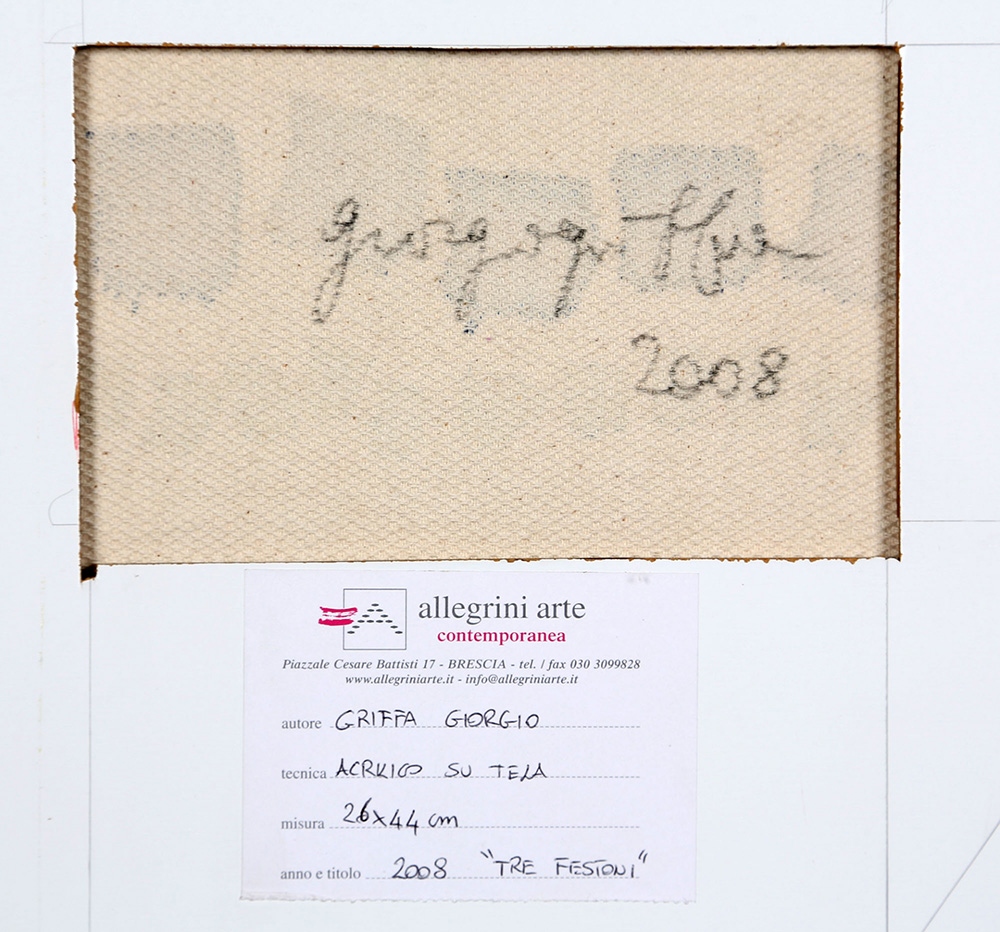 giorgio griffa
2008
allegrini arte
contemporanea
Piazzale Cesare Battisti 17 - BRESCIA - tel. / fax 030 3099828
www.allegriniarte.it - info@allegriniarte.it
autore GRIFFA GIORGIO
tecnica ACRILICO SU TELA
misura 26x44 cm
anno e titolo 2008 "TRE FESTONI"